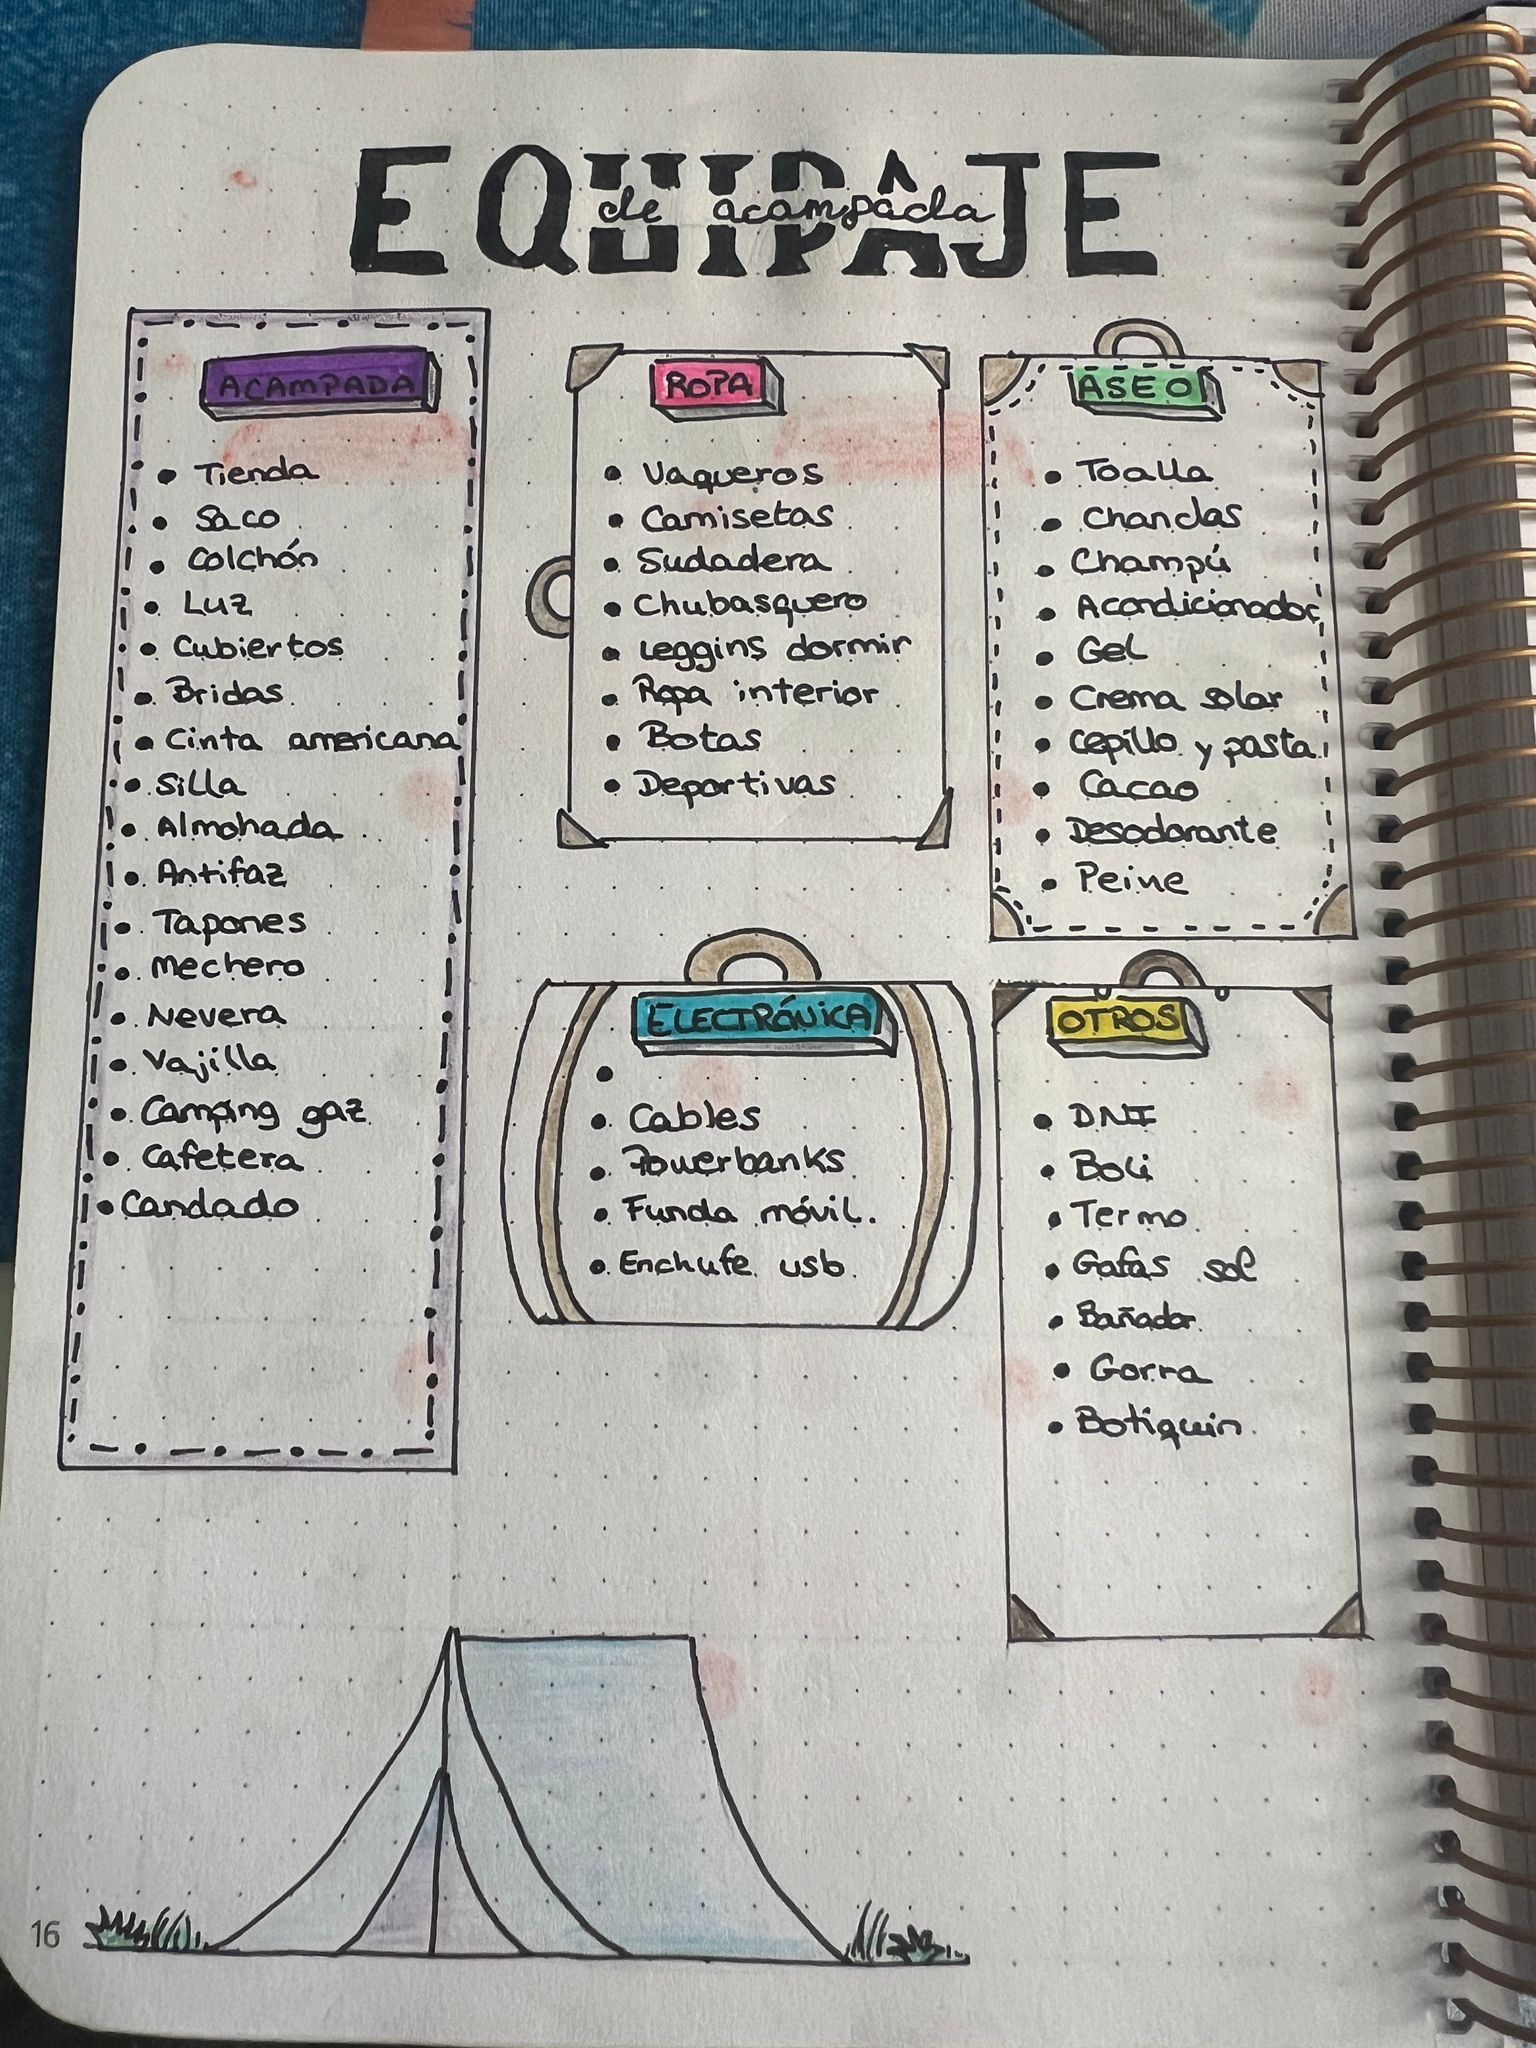 EQUIPAJE
de acampada
ACAMPADA
• Tienda
• Saco
• Colchón
• Luz
• Cubiertos
• Bridas
• Cinta americana
• Silla
• Almohada
• Antifaz
• Tapones
• Mechero
• Nevera
• Vajilla
• Camping gaz
• Cafetera
• Candado
ROPA
• Vaqueros
• Camisetas
• Sudadera
• Chubasquero
• Leggins dormir
• Ropa interior
• Botas
• Deportivas
ASEO
• Toalla
• Chanclas
• Champú
• Acondicionador
• Gel
• Crema solar
• Cepillo y pasta
• Cacao
• Desodorante
• Peine
ELECTRÓNICA
•
• Cables
• Powerbanks
• Funda móvil.
• Enchufe usb
OTROS
• DNI
• Boli
• Termo
• Gafas sol
• Bañador
• Gorra
• Botiquin
16